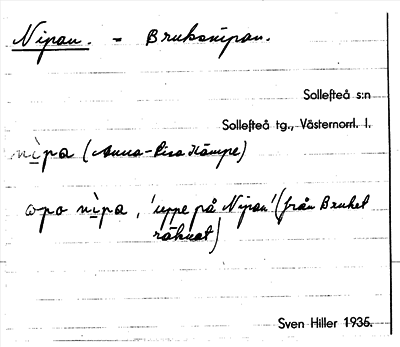 Nipan. - Bruksnipan.
Sollefteå s:n
Sollefteå tg., Västernorrl. l.
nìpa (Anna-Lisa Kämpe)
ωpo nìpa, 'uppe på Nipan' (från Bruket
räknat)
Sven Hiller 1935.